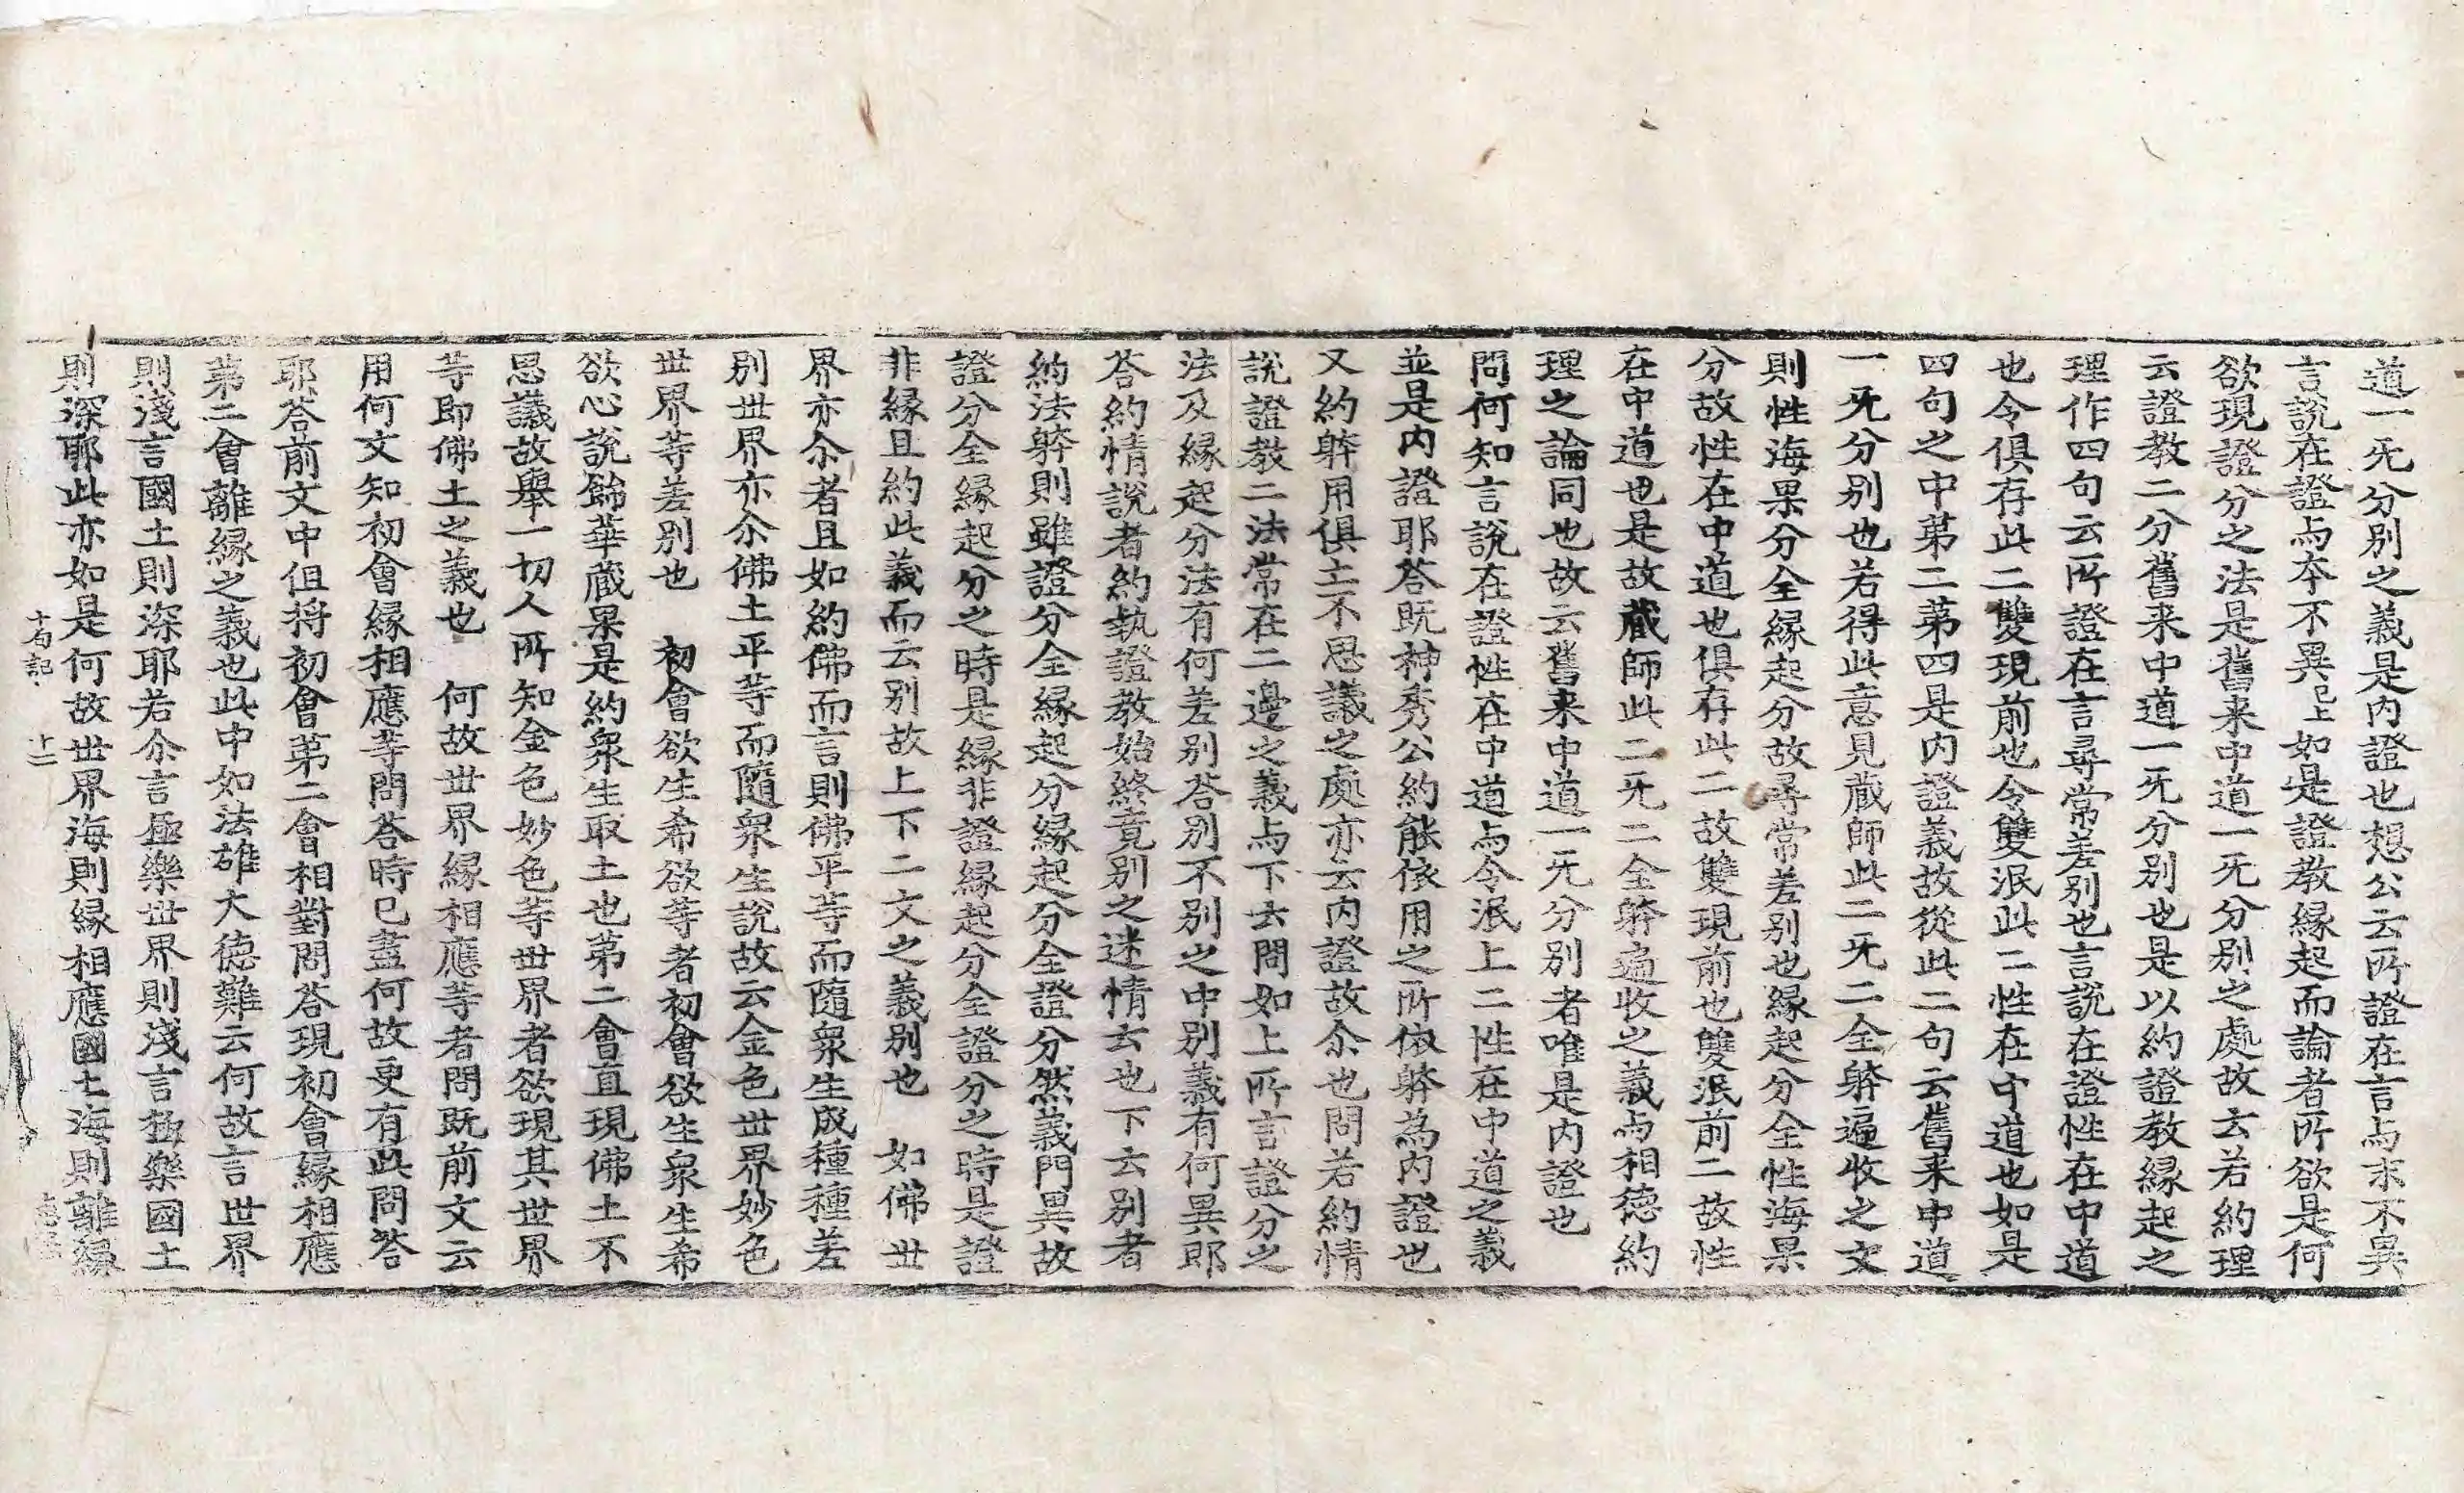 道一无分別之義是內證也想公云所證在言与末不異
言說在證与本不異已上如是證教緣起而論者所欲是何
欲現證分之法是舊来中道一无分別之處故云若約理
云證教二分舊来中道一无分別也是以約證教緣起之
理作四句云所證在言尋常差別也言說在證性在中道
也令俱存此二雙現前也令雙泯此二性在中道也如是
四句之中第二第四是內證義故從此二句云舊来中道
一无分別也若得此意見蔵師此二无二全躰遍收之文
則性海果分全緣起分故尋常差別也緣起分全性海果
分故性在中道也俱存此二故雙現前也雙泯前二故性
在中道也是故蔵師此二无二全躰遍收之義与相德約
理之論同也故云舊来中道一无分別者唯是內證也
問何知言說在證性在中道与令泯上二性在中道之義
並是內證耶荅既神秀公約能依用之所依躰為內證也
又約躰用俱亡不思議之處亦云內證故尒也問若約情
說證教二法常在二邊之義与下云問如上所言證分之
法及緣起分法有何差別荅別不別之中別義有何異耶
荅約情說者約執證教始終竟別之迷情云也下云別者
約法躰則雖證分全緣起分緣起分全證分然義門異故
證分全緣起分之時是緣非證緣起分全證分之時是證
非緣且約此義而云別故上下二文之義別也　如佛世
界亦尒者且如約佛而言則佛平等而隨衆生成種種差
別世界亦尒佛土平等而隨衆生說故云金色世界妙色
世界等差別也　初會欲生希欲等者初會欲生衆生希
欲心說餙華蔵果是約衆生取土也第二會直現佛土不
思議故舉一切人所知金色妙色等世界者欲現其世界
等即佛土之義也　何故世界緣相應等者問既前文云
用何文知初會緣相應等問荅時已盡何故更有此問荅
耶荅前文中但將初會第二會相對問荅現初會緣相應
第二會離緣之義也此中如法雄大德難云何故言世界
則淺言國土則深耶若尒言極樂世界則淺言極樂國土
則深耶此亦如是何故世界海則緣相應國土海則離緣
十句記　十二